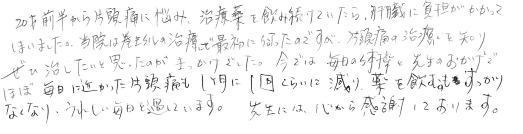 20才前半から片頭痛に悩み、治療薬を飲み続けていたら、肝臓に負担がかかって
しまいました。当院は巻き爪の治療で最初に伺ったのですが、片頭痛の治療も知り
ぜひ治したいと思ったのがきっかけでした。今では毎日の体操と先生のおかげで
ほぼ毎日に近かった片頭痛も1ヶ月に1回くらいに減り、薬を飲む事もすっかり
なくなり、うれしい毎日を過しています。先生には、心から感謝しております。